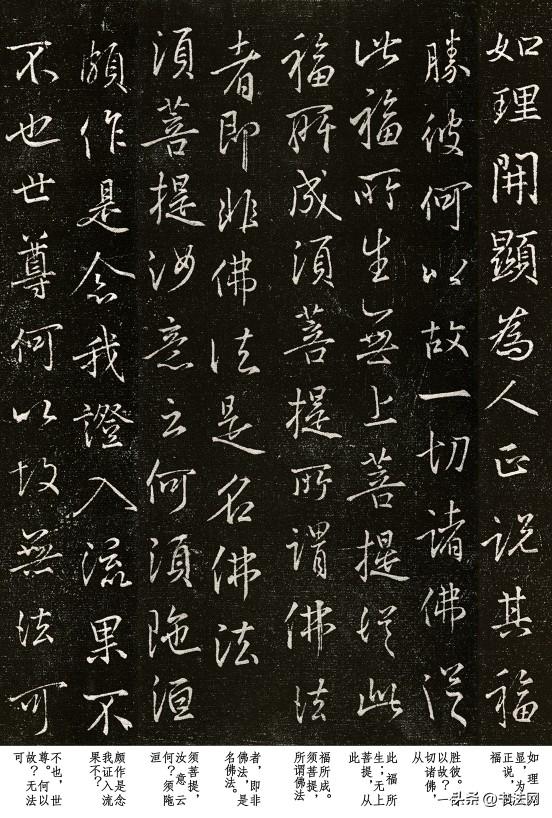 如理開顯為人正說其福
勝彼何以故一切諸佛從
此福所生無上菩提從此
福所成須菩提所謂佛法
者即非佛法是名佛法
須菩提汝意云何須陁洹
頗作是念我證入流果不
不也世尊何以故無法可
如理，开
显，为人
正说，其
福
胜彼。何
以故？一
切诸佛，
从
此，福所
生；无上
菩提，从
此
福所成。
须菩提，
所谓佛法
者，即非
佛法，是
名佛法。
须菩提，
汝意云
何？须陁
洹
颇作是念
我证入流
果不？
不也，世
尊。何以
故？无法
可
头条 @书法网